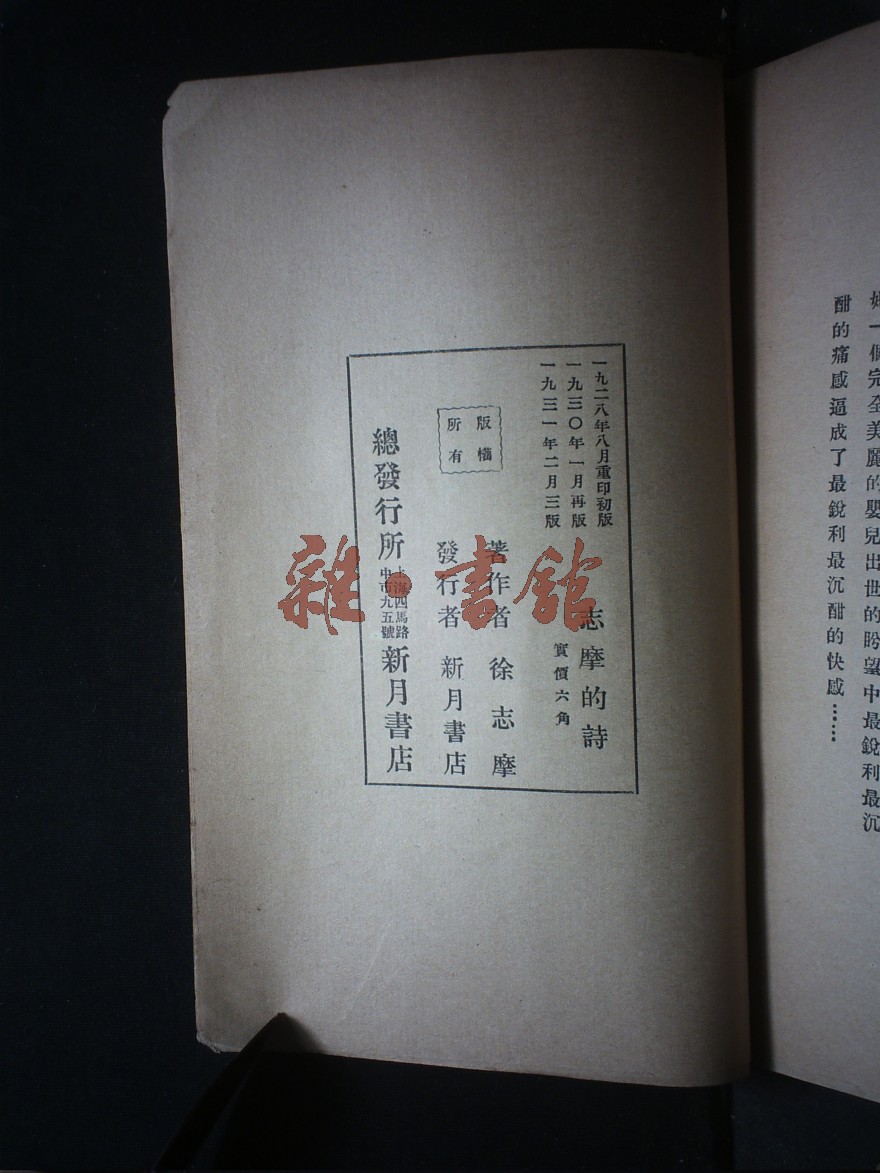 一個完全美麗的嬰兒出世的盼望中最銳利最沉
酣的痛感逼成了最銳利最沉酣的快感……
一九二八年八月重印初版
一九三〇年一月再版
一九三一年二月三版
志摩的詩
實價六角
著作者 徐志摩
發行者 新月書店
版權
所有
總發行所 上海四馬路
中市九五號 新月書店
雜·書館